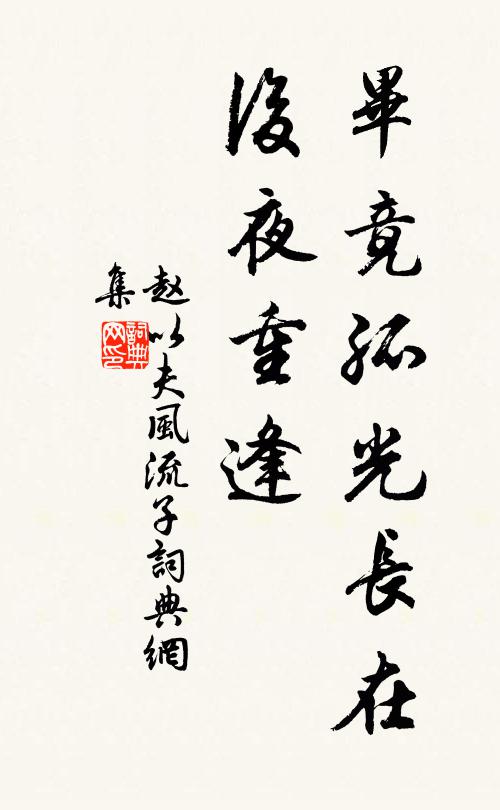 畢竟孤光長在
後夜重逢
赵以夫風流子詞典網
集
詞典
网印